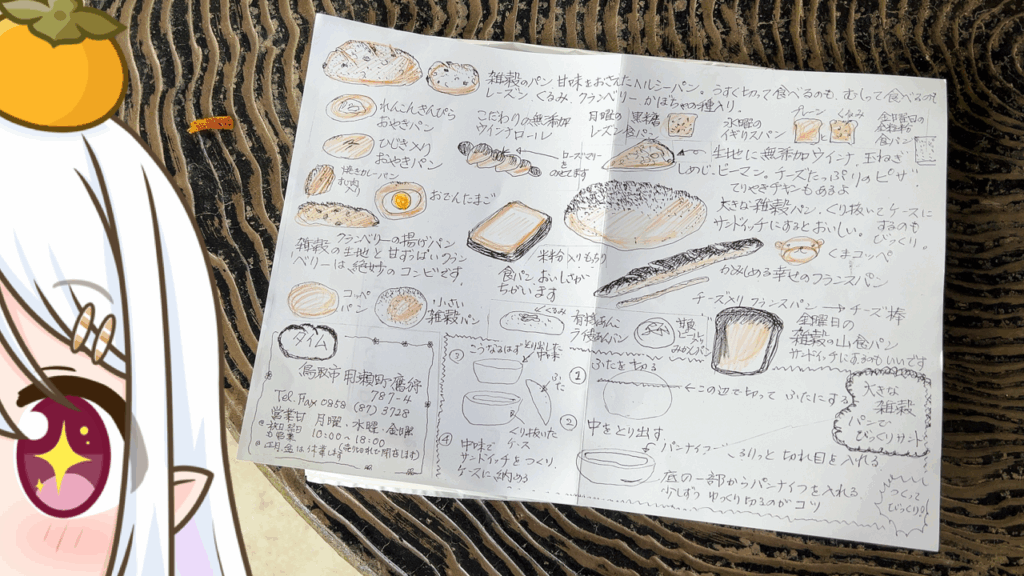 雑穀のパン 甘味をおさえたヘルシーパン。うすく切って食べるのも、むしって食べるのも
レーズン、くるみ、クランベリー、かぼちゃの種入り。
れんこんきんぴら
おやきパン
ひじき入り
おやきパン
焼きカレーパン
おさんたまご
クランベリーの揚げパン
雑穀の生地と甘ずっぱいクラン
ベリーは、絶妙のコンビです。
コッペ
パン
小さい
雑穀パン
こだわりの無添加
ウインナロール
月曜の
レーズン食パン
水曜の
イギリスパン
プレーン
くるみ
金曜日の
食パン
生地に無添加ウインナ、玉ねぎ
しめじ、ピーマン。チーズたっぷりのピザ
てりやきチキンもあるよ
大きな雑穀パン、くり抜いてケースに
サンドイッチにするとおいしい。
するのも
びっくり。
くまコッペ
米粉入りもちり
食パン、おいしさが
ちがいます
かみしめる幸せのフランスパン
チーズ入りフランスパン→チーズ棒
くるみ
有機あんこ
金曜日の
雑穀の山食パン
サンドイッチにするのもいいです
タイム
鳥取市用瀬町鷹狩
787-4
Tel.Fax 0858 (87) 3728
営業日 月曜、水曜、金曜
10:00〜18:00
こうなるはず
とり出した中味
ふた
くり抜いた
ケース
④ 中味で
サンドイッチをつくり、
ケースに納める
① ふたを切る
←この辺で切って ふたにする
② 中をとり出す
パンナイフ
くるりっと 切れ目を入れる
底の一部からパンナイフを入れる
少しずつ ゆっくり切るのがコツ
大きな
雑穀
パンで
びっくりサンド
つくって
びっくり!!